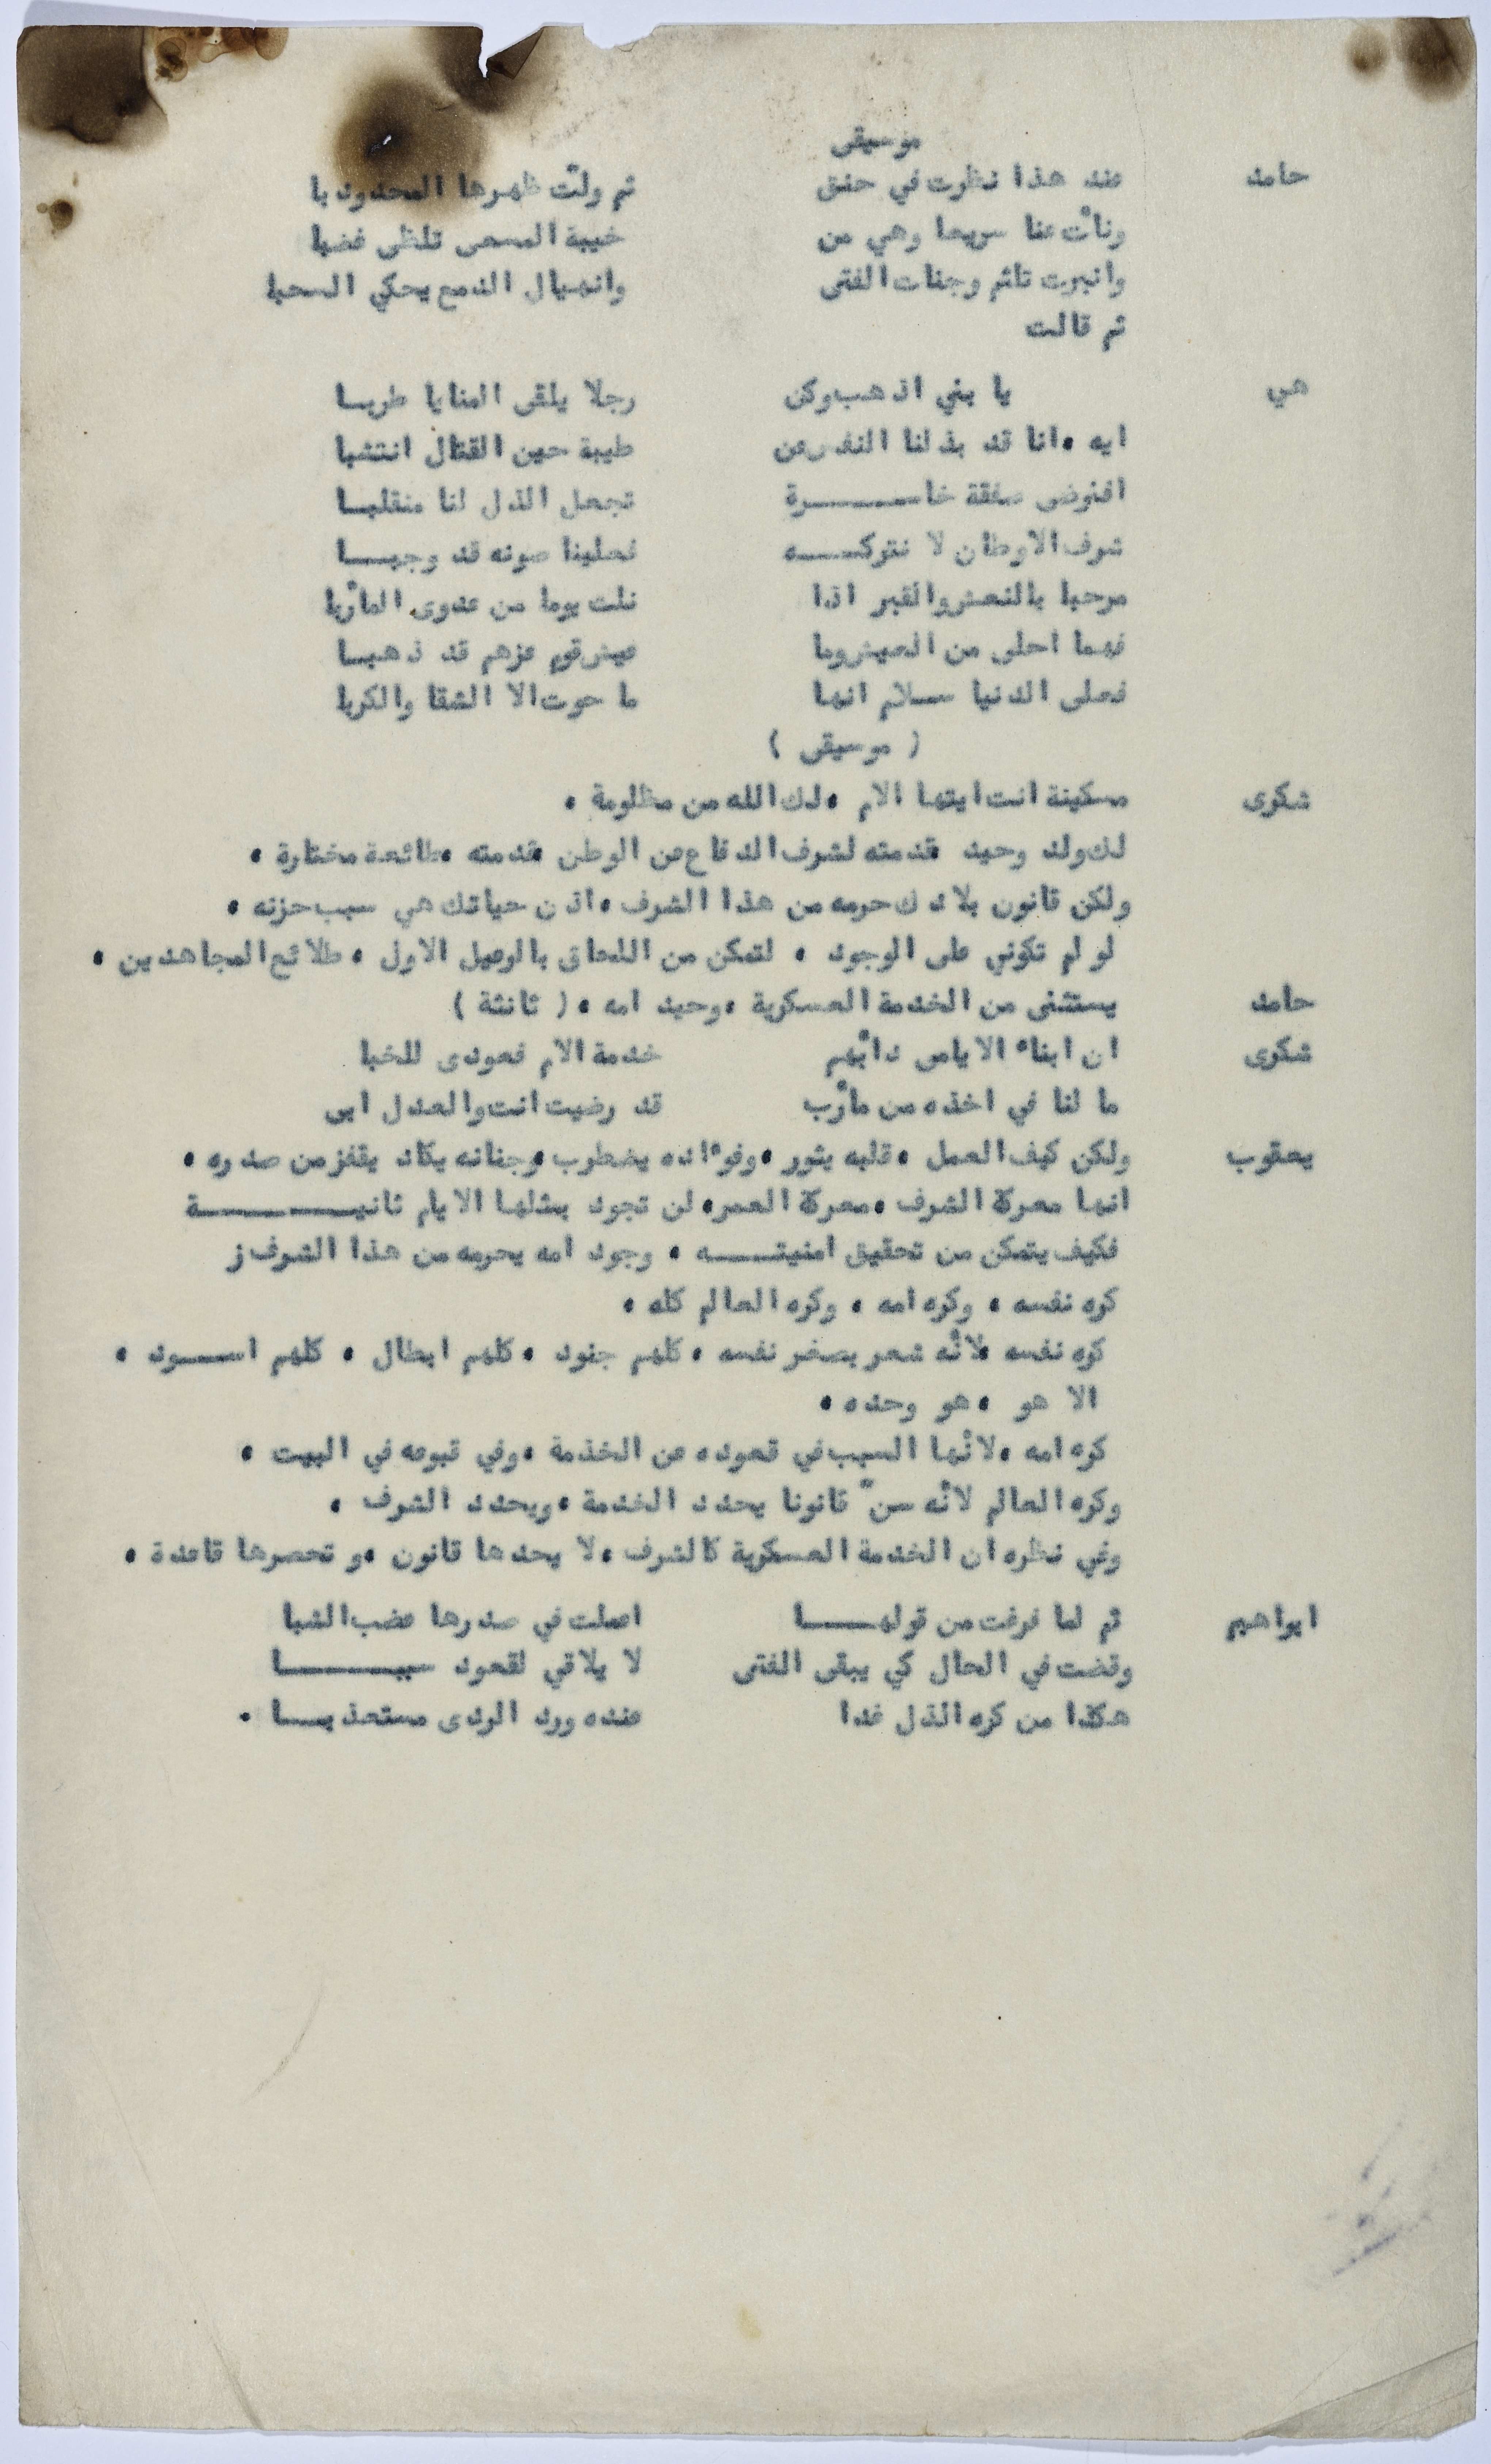 موسيقى
حامد عند هذا نظرت في حنق ثم ولت ظهرها المحدود با
ونأت عنا سريعا وهي من خيبة المسعى تلظى غضبا
وانبرت تلثم وجنات الفتى وانهيال الدمع يحكي السحبا
ثم قالت
هي يا بني اذهب وكن رجلا يلقى المنايا طربا
ايه ، انا قد بذلنا النفس عن طيبة حين القتال انتشبا
افنرضى صفقة خاسرة تجعل الذل لنا منقلبا
شرف الاوطان لا نتركه فعلينا صونه قد وجبا
مرحبا بالنعش والقبر اذا نلت يوما من عدوى المأربا
فهما احلى من العيش وما عيش قوم عزهم قد ذهبا
فعلى الدنيا سلام انها ما حوت الا الشقا والكربا
( موسيقى )
شكرى مسكينة انت ايتها الام ، لك الله من مظلومة .
لك ولد وحيد قدمته لشرف الدفاع عن الوطن ، قدمته ، طائعة مختارة .
ولكن قانون بلادك حرمه من هذا الشرف ، اذن حياتك هي سبب حزنه .
لو لم تكوني على الوجود . لتمكن من اللحاق بالرعيل الاول . طلائع المجاهدين .
حامد يستثنى من الخدمة العسكرية ، وحيد امه . ( ثانئة )
شكرى ان ابناء الايامى دأبهم خدمة الام فعودى للخبا
ما لنا في اخذه من مأرب قد رضيت انت والعدل ابى
يعقوب ولكن كيف العمل ، قلبه يثور ، وفوءاده يضطرب ، وجنانه يكاد يقفز من صدره .
انها معركة الشرف ، معركة العمر ، لن تجود بمثلها الايام ثانية
فكيف يتمكن من تحقيق امنيته . وجود امه يحرمه من هذا الشرف ز
كره نفسه . وكره امه . وكره العالم كله .
كره نفسه لأنه شعر بصغر نفسه . كلهم جنود . كلهم ابطال . كلهم اسود .
الا هو . هو وحده .
كره امه ، لأنها السبب في قعوده عن الخذمة ، وفي قبوعه في البيت .
وكره العالم لأنه سنّ قانونا يحدد الخدمة ، ويحدد الشرف .
وفي نظره ان الخدمة العسكرية كالشرف ، لا يحدها قانون ، و تحصرها قاعدة .
ابراهيم ثم لما فرغت من قولها اعملت في صدرها عضب الشبا
وقضت في الحال كي يبقى الفتى لا يلاقي لقعود سببا
هكذا من كره الذل غدا عنده ورد الردى مستعذبا .